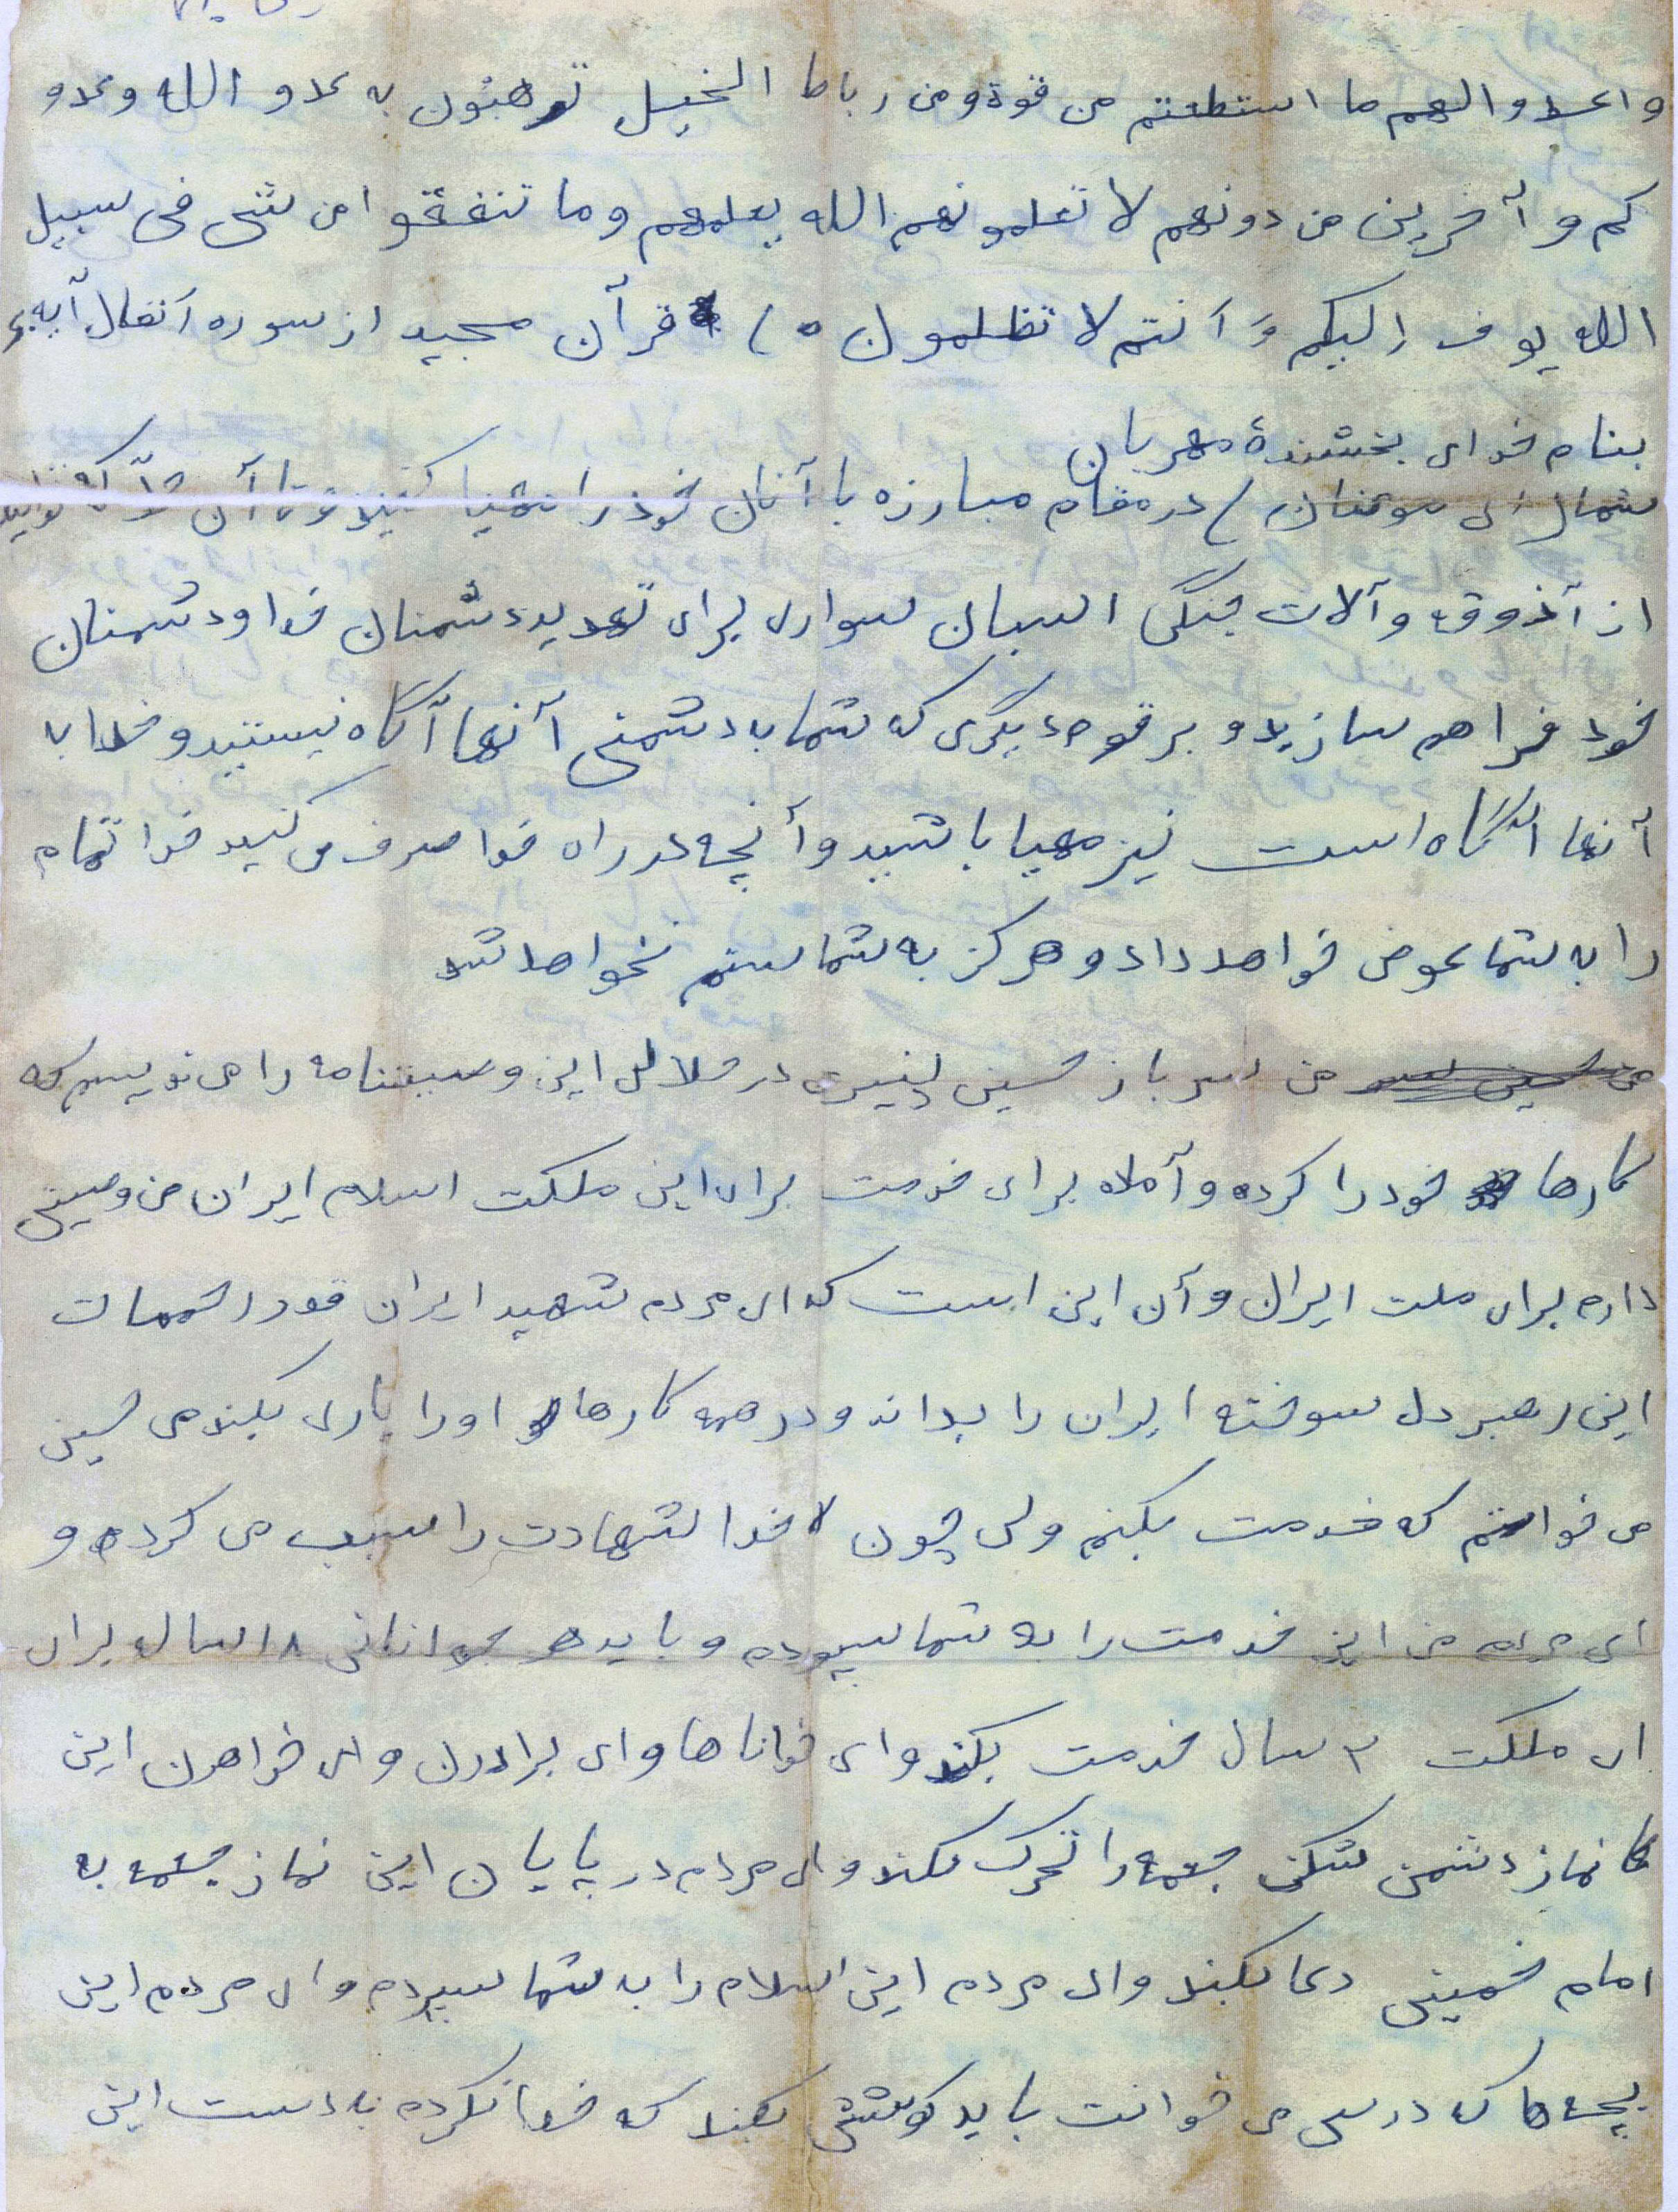 واعدوا لهم ما استطعتم من قوة ومن رباط الخیل ترهبون به عدو الله وعدو
کم و آخرین من دونهم لا تعلمونهم الله یعلمهم وما تنفقو امن شی فی سبیل
الله یوف الیکم وَ اَنتم لا تظلمون ۰) قرآن مجید از سوره اَنفال آیه ۶۰
بنام خدای بخشندهٔ مهربان
شما (ای مومنان) در مقام مبارزه با آنان خود را مهیا کنید و تا آن حدّ که توانید
از آذوقه و آلات جنگی اسبان سواری برای تهدید دشمنان خدا و دشمنان
خود فراهم سازید و بر قوم دیگری که شما به دشمنی آنها آگاه نیستید و خدا به
آنها آگاه است نیز مهیا باشید و آنچه در راه خدا صرف می کنید خدا تمام
را به شما عوض خواهد داد و هرگز به شما ستم نخواهد شد
من سرباز حسین در این وصیتنامه را می نویسم که
کارها خود را کرده و آماده برای خدمت برای این مملکت اسلام ایران من وصیتی
دارم برای ملت ایران و آن این است که ای مردم شهید ایران قدر
این رهبر دل سوخته ایران را بداند و در همه کارها او را یاری بکند من حسین
می خواستم که خدمت بکنم ولی چون خدا شهادت را نصیب می کرده و
ای مردم من این خدمت را به شما سپرده و باید هر جوانانی ۱۸ سال برای
ای مملکت ۲ سال خدمت بکند و ای و ای برادرن و ای خواهرن این
نماز دشمن شکن جمعه را ترک نکند و ای مردم در پایان این نماز جمعه به
امام خمینی دعا بکند و ای مردم این اسلام را به شما سپرده و ای مردم این
بچه ها که درس می خوانت باید کوشش بکند که خدا نکرده به دست این